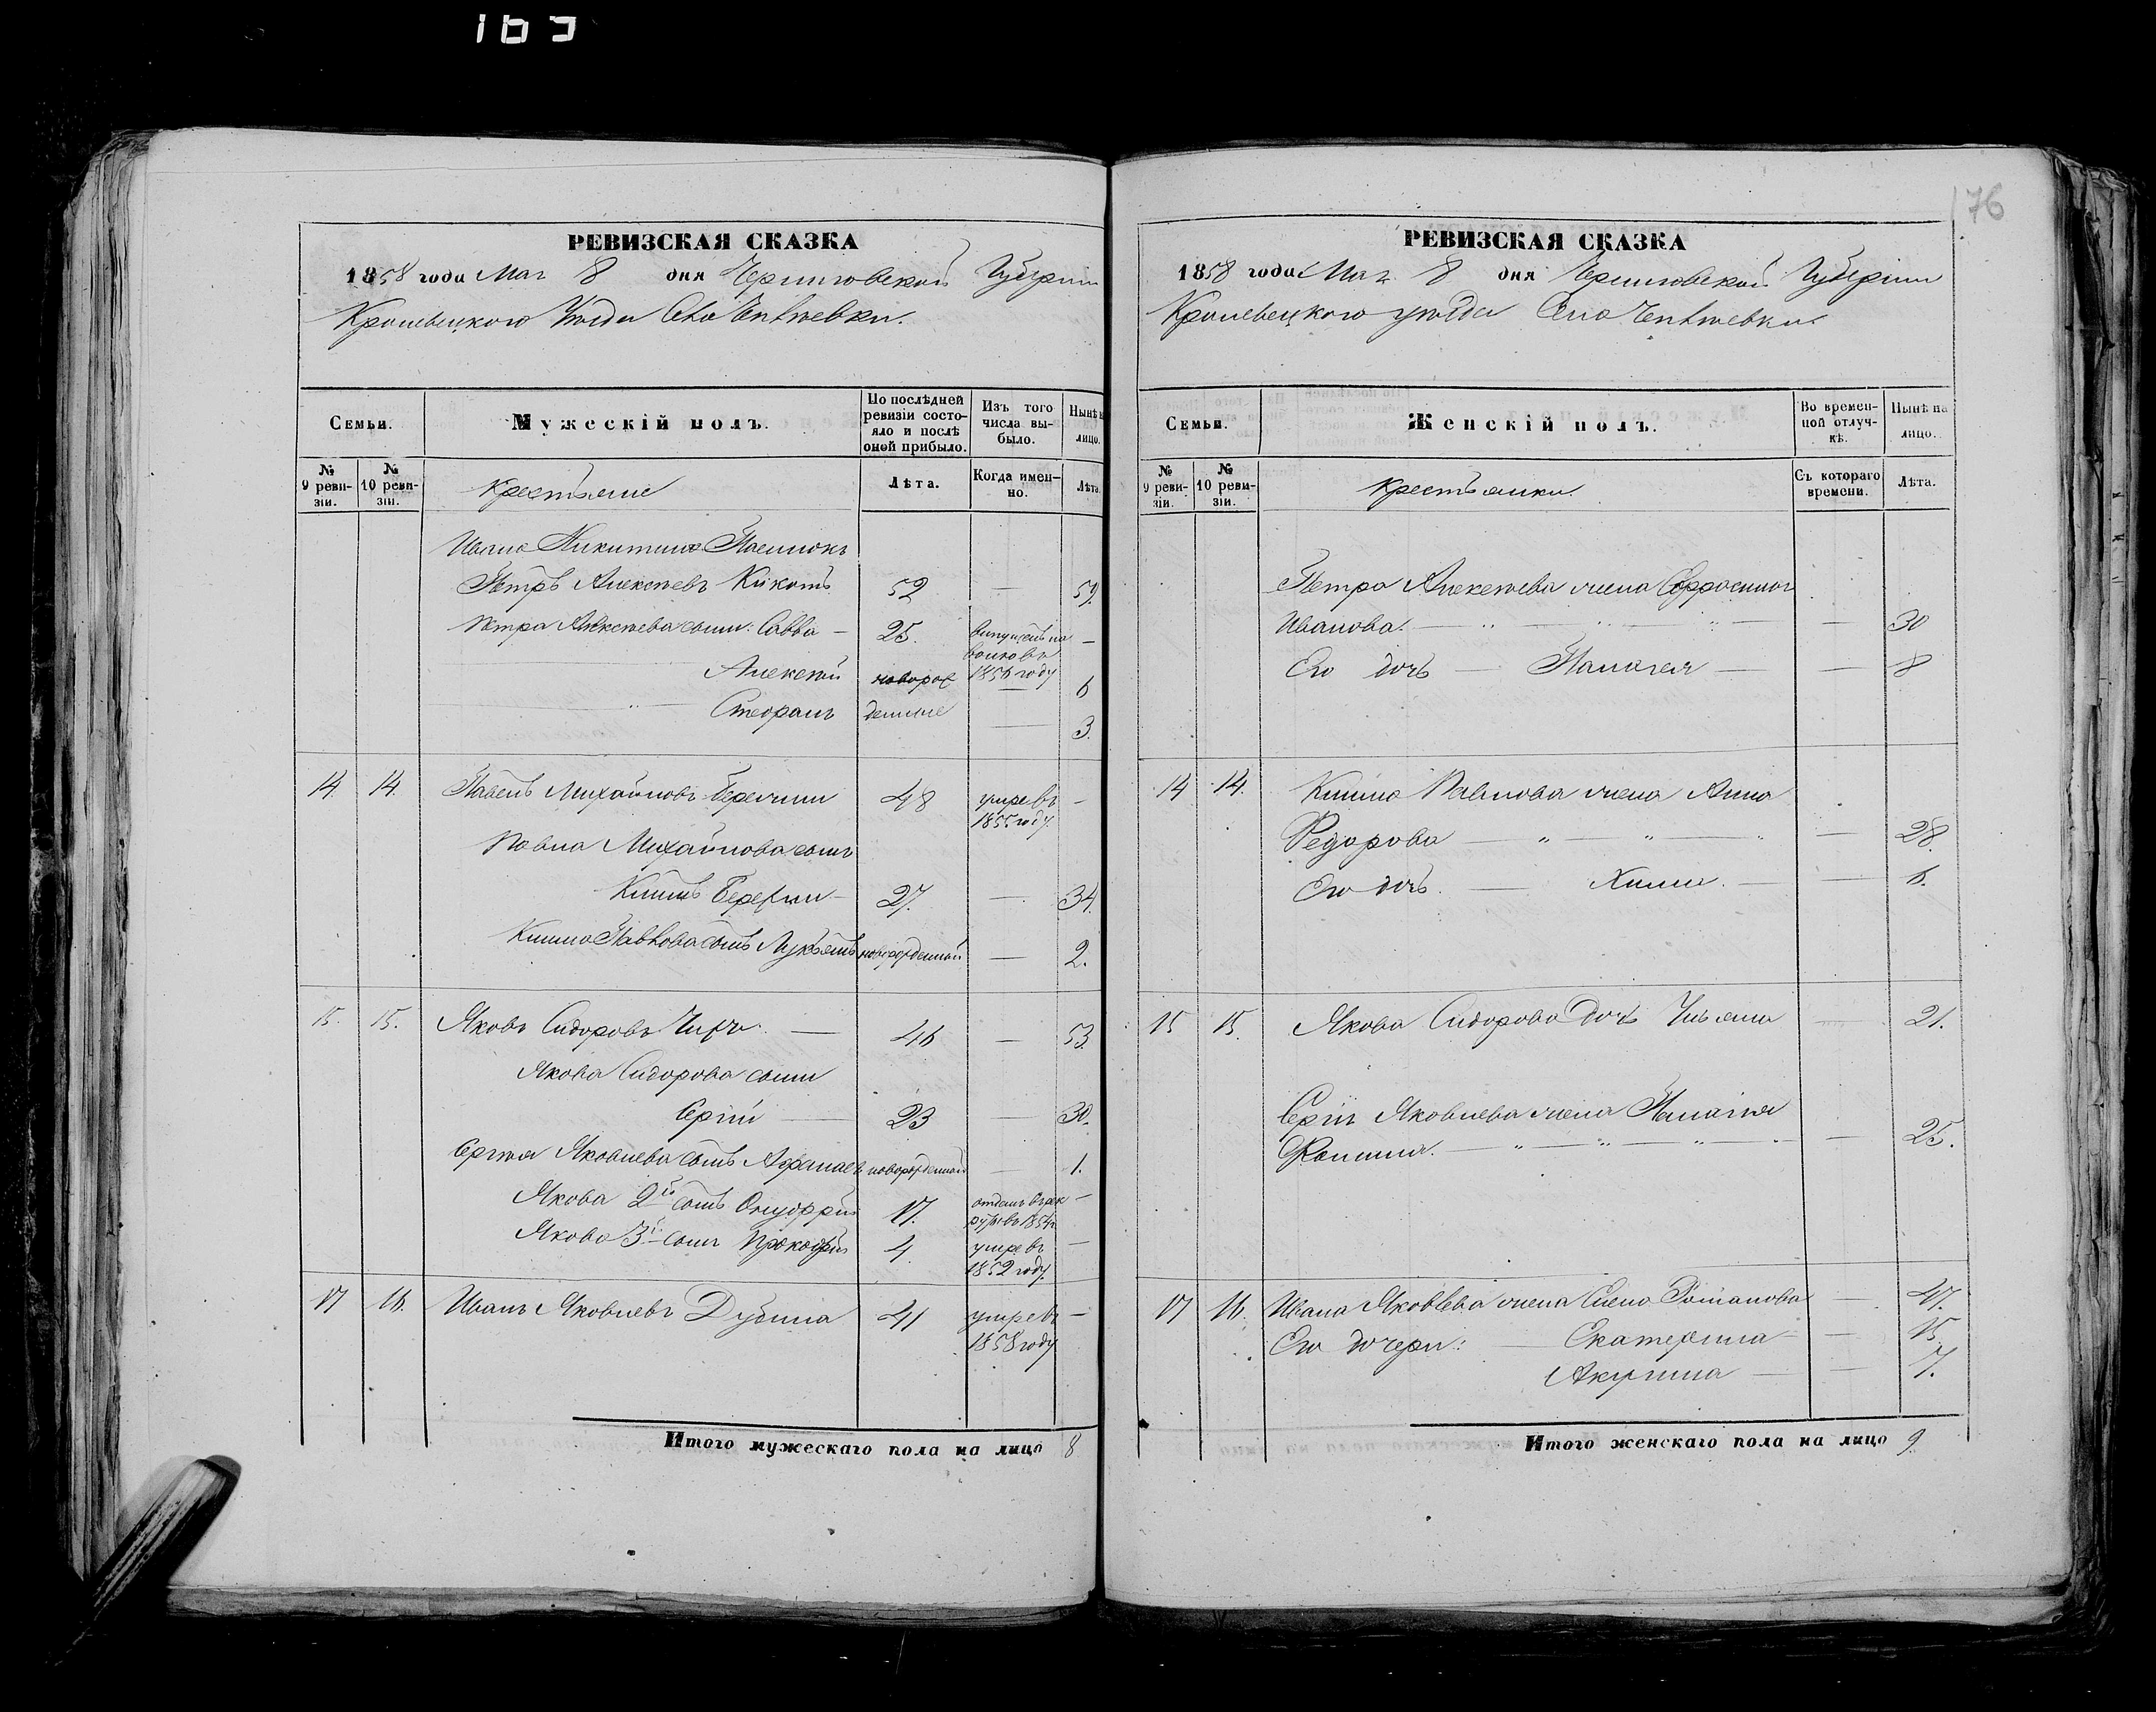 165
РЕВИЗСКАЯ СКАЗКА
1858 года Мая 8 дня Черниговской Губерніи
Кролевецкого Уѣзда Села
Семьи.
Мужескій полъ.
По послѣдней ревизіи состояло и послѣ оной прибыло.
Изъ того числа выбыло.
Нынѣ на лицо.
№ 9 ревизіи.
№ 10 ревизіи.
Крестьяне
Лѣта.
Когда именно.
Лѣта.
Ивана Никитина
Петръ Алексѣевъ Кикоть 52 — 59
Петра Алексѣева сыны: Савва — 25. —
1856 году
Алексѣй новорож 6
Стефанъ денные — 3.
14. 14. Павелъ Михайловъ 48 умре въ —
1855 году.
Павла Михайлова сынъ
27. — 34.
Павлова сынъ Лукьянъ новорожденный — 2.
15. 15. Яковъ Сидоровъ — 46 — 53.
Якова Сидорова сыны
Сергій — 23 — 30.
Сергія Яковлева сынъ новорожденный — 1.
Якова 2й сынъ Онуфрій 17. отданъ въ рек —
руты въ 1854 г.
Якова 3й сынъ Прокофій 4. умре въ —
1852 году.
17 16. Иванъ Яковлевъ Дубина 41 умре въ —
1858 году
Итого мужескаго пола на лицо 8
176
РЕВИЗСКАЯ СКАЗКА
1858 года Мая 8 дня Черниговской Губерніи
Кролевецкого уѣзда Села
Семьи.
Женскій полъ.
Во временной отлучкѣ.
Нынѣ на лицо.
№ 9 ревизіи.
№ 10 ревизіи.
Крестьянки.
Съ котораго времени.
Лѣта.
Петра Алексѣева жена Ефросинія
Иванова. — " — " — " — — 30
Его дочь — Палагея — — 8
14 14. Павлова жена Анна
Федорова — " — " — " — 28.
Его дочь. — — — 6.
15 15. Якова Сидорова дочь Ульяна — 21.
Сергія Яковлева жена Палагія
— " — " — " — " — 25.
17 16. Ивана Яковлева жена Елена Романова — 47.
Его дочери: — Екатерина — — 15.
Акулина — — 7.
Итого женскаго пола на лицо 9